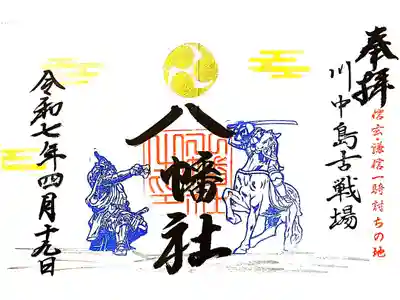 奉拝
川中島古戦場
信玄・謙信一騎討ちの地
八幡社
令和七年四月十九日